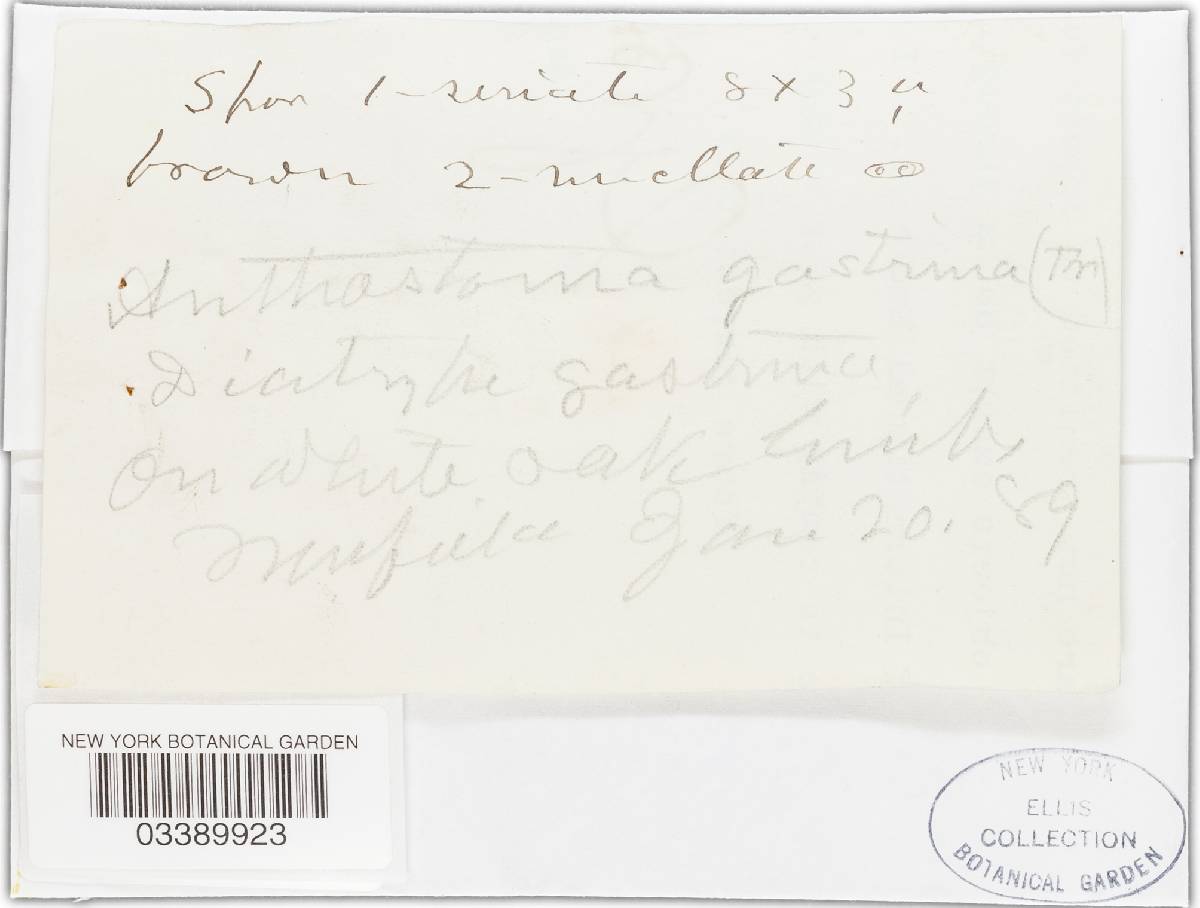 Spor 1-seriate 8 x 3 µ
brown 2-nucllate
Anthostoma gastrina (Fr)
Diatrype gastrina
On White oak limbs
Newfield Jan 20. 89
NEW YORK BOTANICAL GARDEN
03389923
NEW YORK
ELLIS
COLLECTION
BOTANICAL GARDEN